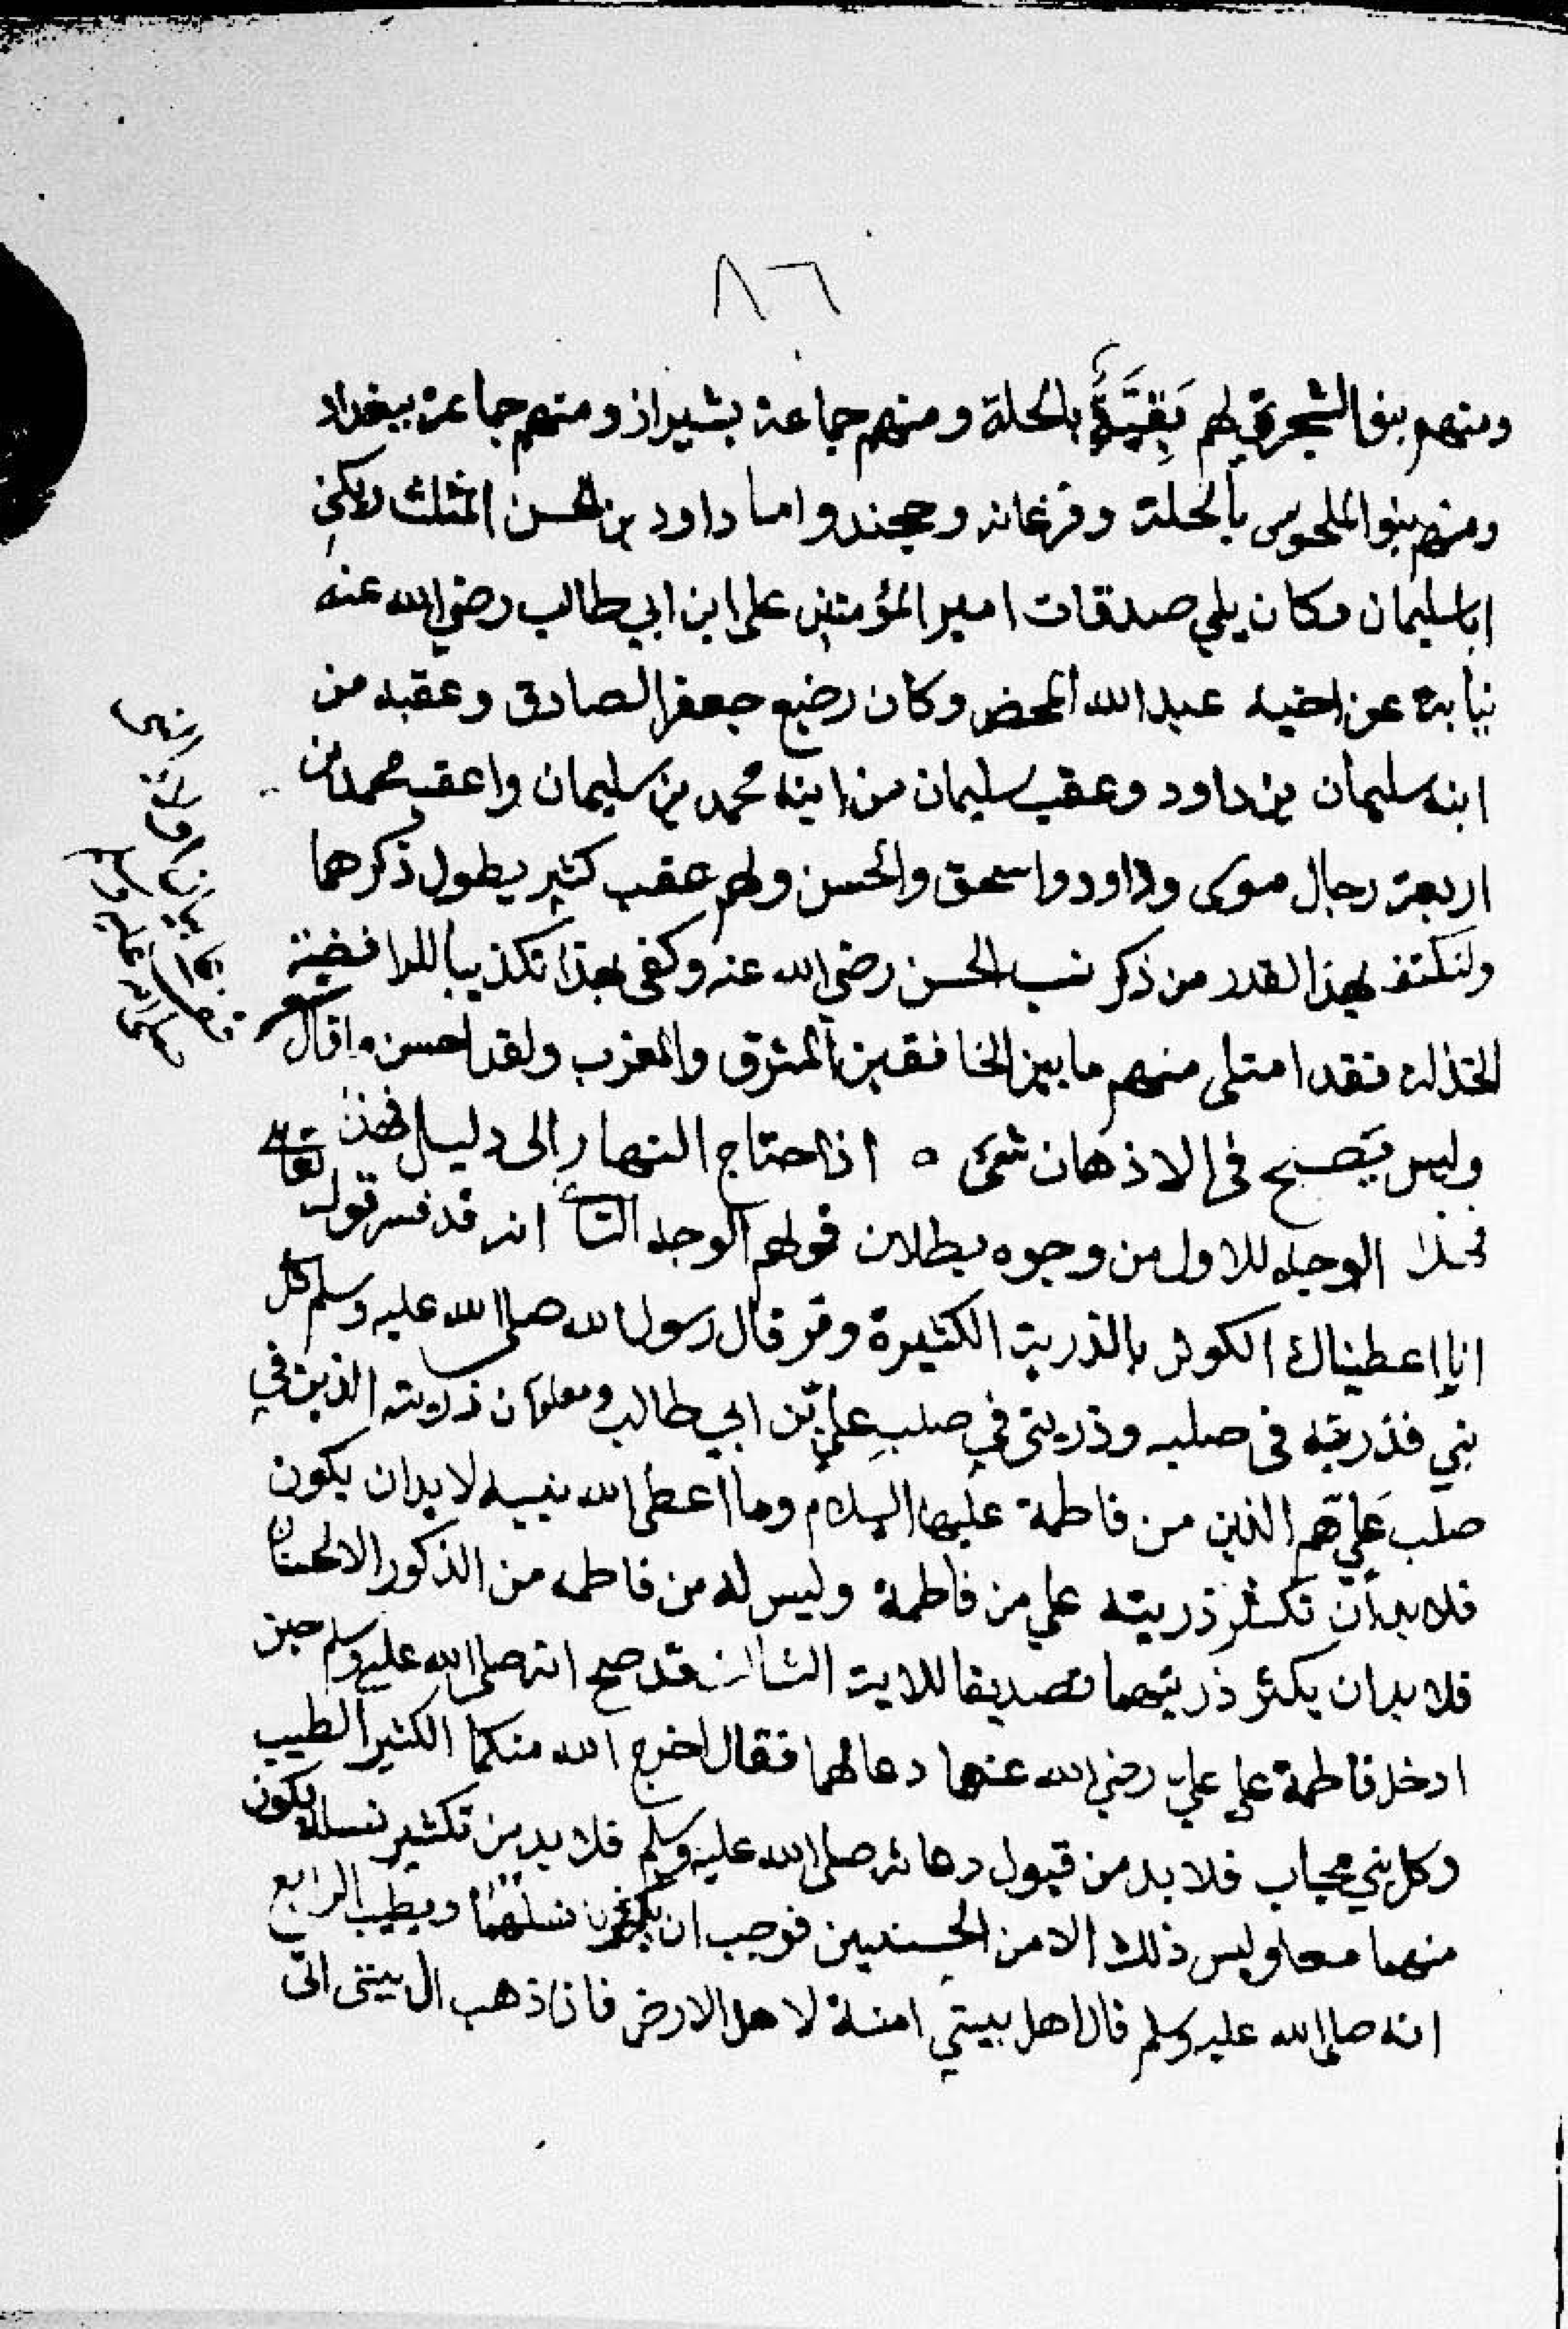 ٨٦
ومنهم بنو الشجري لهم بَقِيَّةٌ بالحلة ومنهم جماعة بشيراز ومنهم جماعة ببغداد
ومنهم بنو الملحوس بالحلة وفرغانه وخجند واما داود بن الحسن المثلث ويكنى
ابا سليمان وكان يلي صدقات امير المؤمنين على ابن ابي طالب رضي الله عنه
نيابة عن اخيه عبد الله المحض وكان رضيع جعفر الصادق وعقبه من
ابنه سليمان بن داود وعقب سليمان من ابنه محمد بن سليمان واعقب محمد من
اربعة رجال موسى وداود واسحق والحسن ولهم عقب كثير يطول ذكرهما
ولنكتف بهذا القدر من ذكر نسب الحسن رضي الله عنه وكفى بهذا تكذيبا للرافضة
الخذله فقد امتلى منهم ما بين الخافقين المشرق والمغرب ولقد احسن من قال شعر
وليس يَصح في الاذهان شئ ه اذا احتاج النهار إلى دليل فهذا
فهذا الوجه الاول من وجوه بطلان قولهم الوجه الثاني انه قد فسر قوله تعالى
انا اعطيناك الكوثر بالذرية الكثيرة وقد قال رسول الله صلى الله عليه وسلم كل
نبي فذريته في صلبه وذريتي في صلبِ عليّ بن ابي طالب ومعلوم ان ذريته الذين في
صلب عَلِيّ هم الذين من فاطمة عليها السلام وما اعطى الله نبيه لا بد ان يكون
فلا بد أن تكثر ذريته علي من فاطمة وليس له من فاطمه من الذكور الا الحسنان
فلا بد ان يكثر ذريتهما تصديقا للاية الثالث قد صح انه صلى الله عليه وسلم حين
ادخل فاطمة على عليّ رضي الله عنهما دعا لهما فقال اخرج الله منكما الكثير الطيب
وكل نبي مجاب فلا بد من قبول دعائه صلى الله عليه وسلم فلا بد من تكثير نسله يكون
منهما معا وليس ذلك الا من الحسنيين فوجب ان يكثر نسلهما ويطيب الرابع
انه صلى الله عليه وسلم قال اهل بيتي امنة لاهل الارض فاذا ذهب ال بيتي اتى
صلى الله عليه وسلم